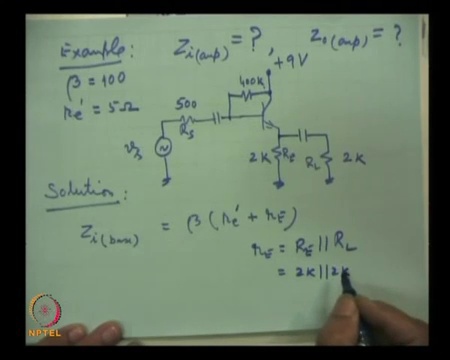 Example: Zi(amp) = ? , Zo(amp) = ?
β = 100
re' = 5Ω
+9V
400K
500
Rs
vs
2K RE
RL 2K
Solution:
Zi(base) = β (re' + rE)
rE = RE || RL
= 2K || 2K
NPTEL